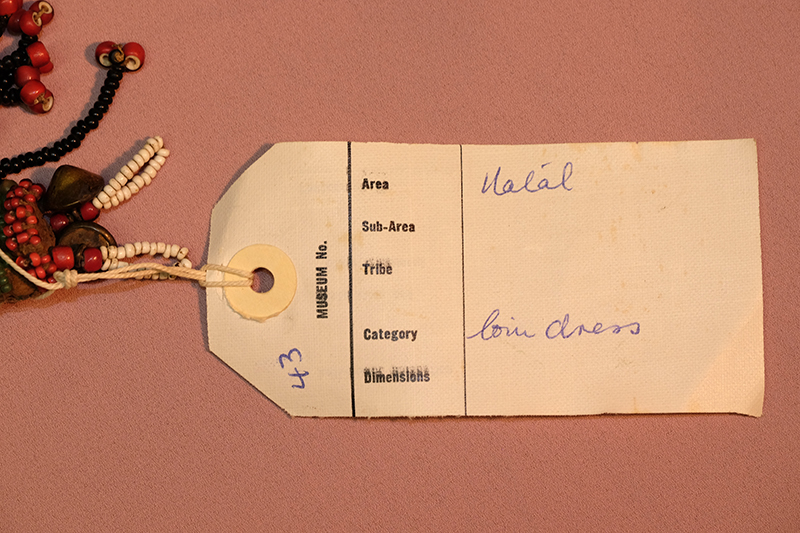 MUSEUM No.
43
Area Natál
Sub-Area
Tribe
Category loin dress
Dimensions